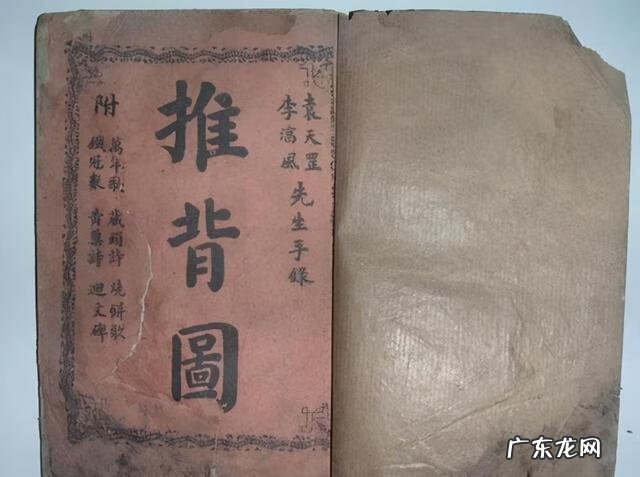 袁天罡
李淳風
先生手錄
推背圖
附
萬年歌 藏頭詩 燒餅歌
鐵冠數 黃蘗詩 迴文碑
广东龙网